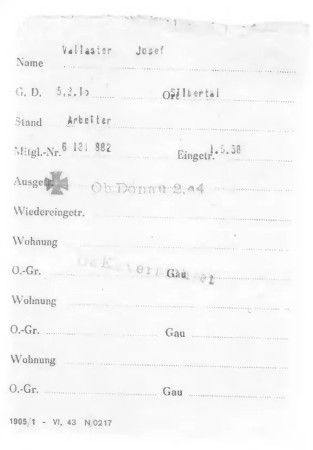 Name Vallaster Josef
G. D. 5.2.10 Ort Silbertal
Stand Arbeiter
Mitgl.-Nr. 6 181 882 Eingetr. 1.5.38
Ausgetr. Ob Donau 2.44
Wiedereingetr.
Wohnung
O.-Gr. Gau
Wohnung
O.-Gr. Gau
Wohnung
O.-Gr. Gau
1905/1 - VI. 43 N/0217